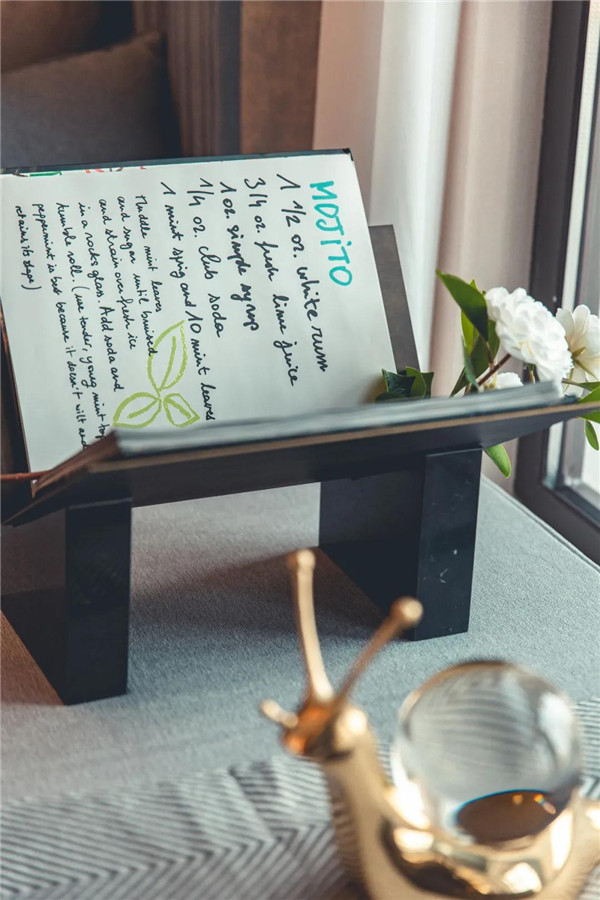 MOJITO
1 1/2 oz. white rum
3/4 oz. fresh lime juice
1 oz. simple syrup
1/4 oz. club soda
1 mint sprig and 10 mint leaves
Muddle mint leaves
and sugar until bruised
and strain over fresh ice
in a rocks glass. Add soda and
tumble roll. (use tender, young mint
peppermint is best because it doesn't wilt and
retains its shape)